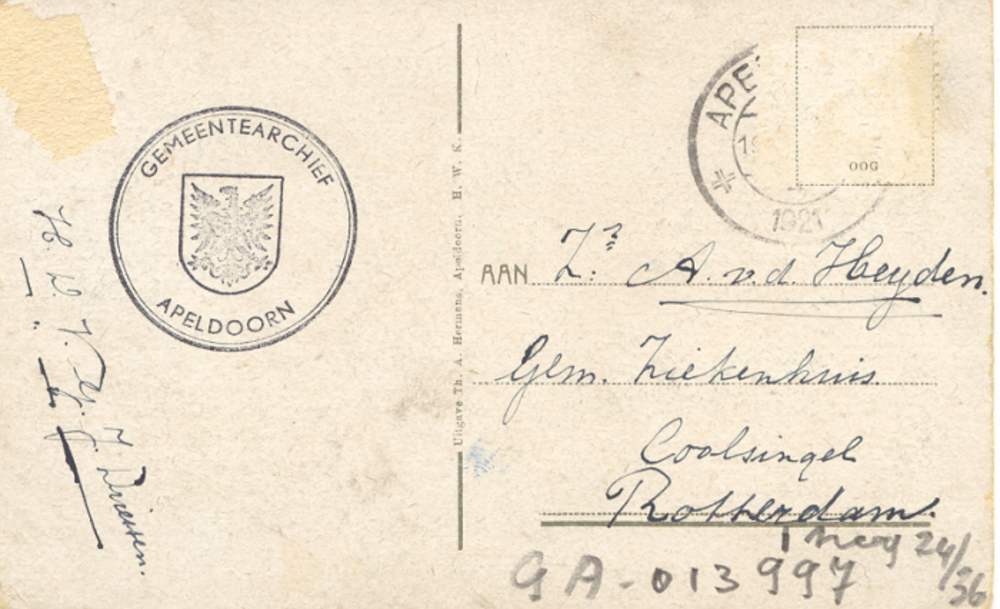 GEMEENTEARCHIEF
APELDOORN
J. Driessen.
Uitgave Th. A. Hermans, Apeldoorn, H. W. K.
APE
19
1921
OOG
AAN Zr. A. v.d. Heyden.
Gem. Ziekenhuis
Coolsingel
Rotterdam.
24/36
GA-013997